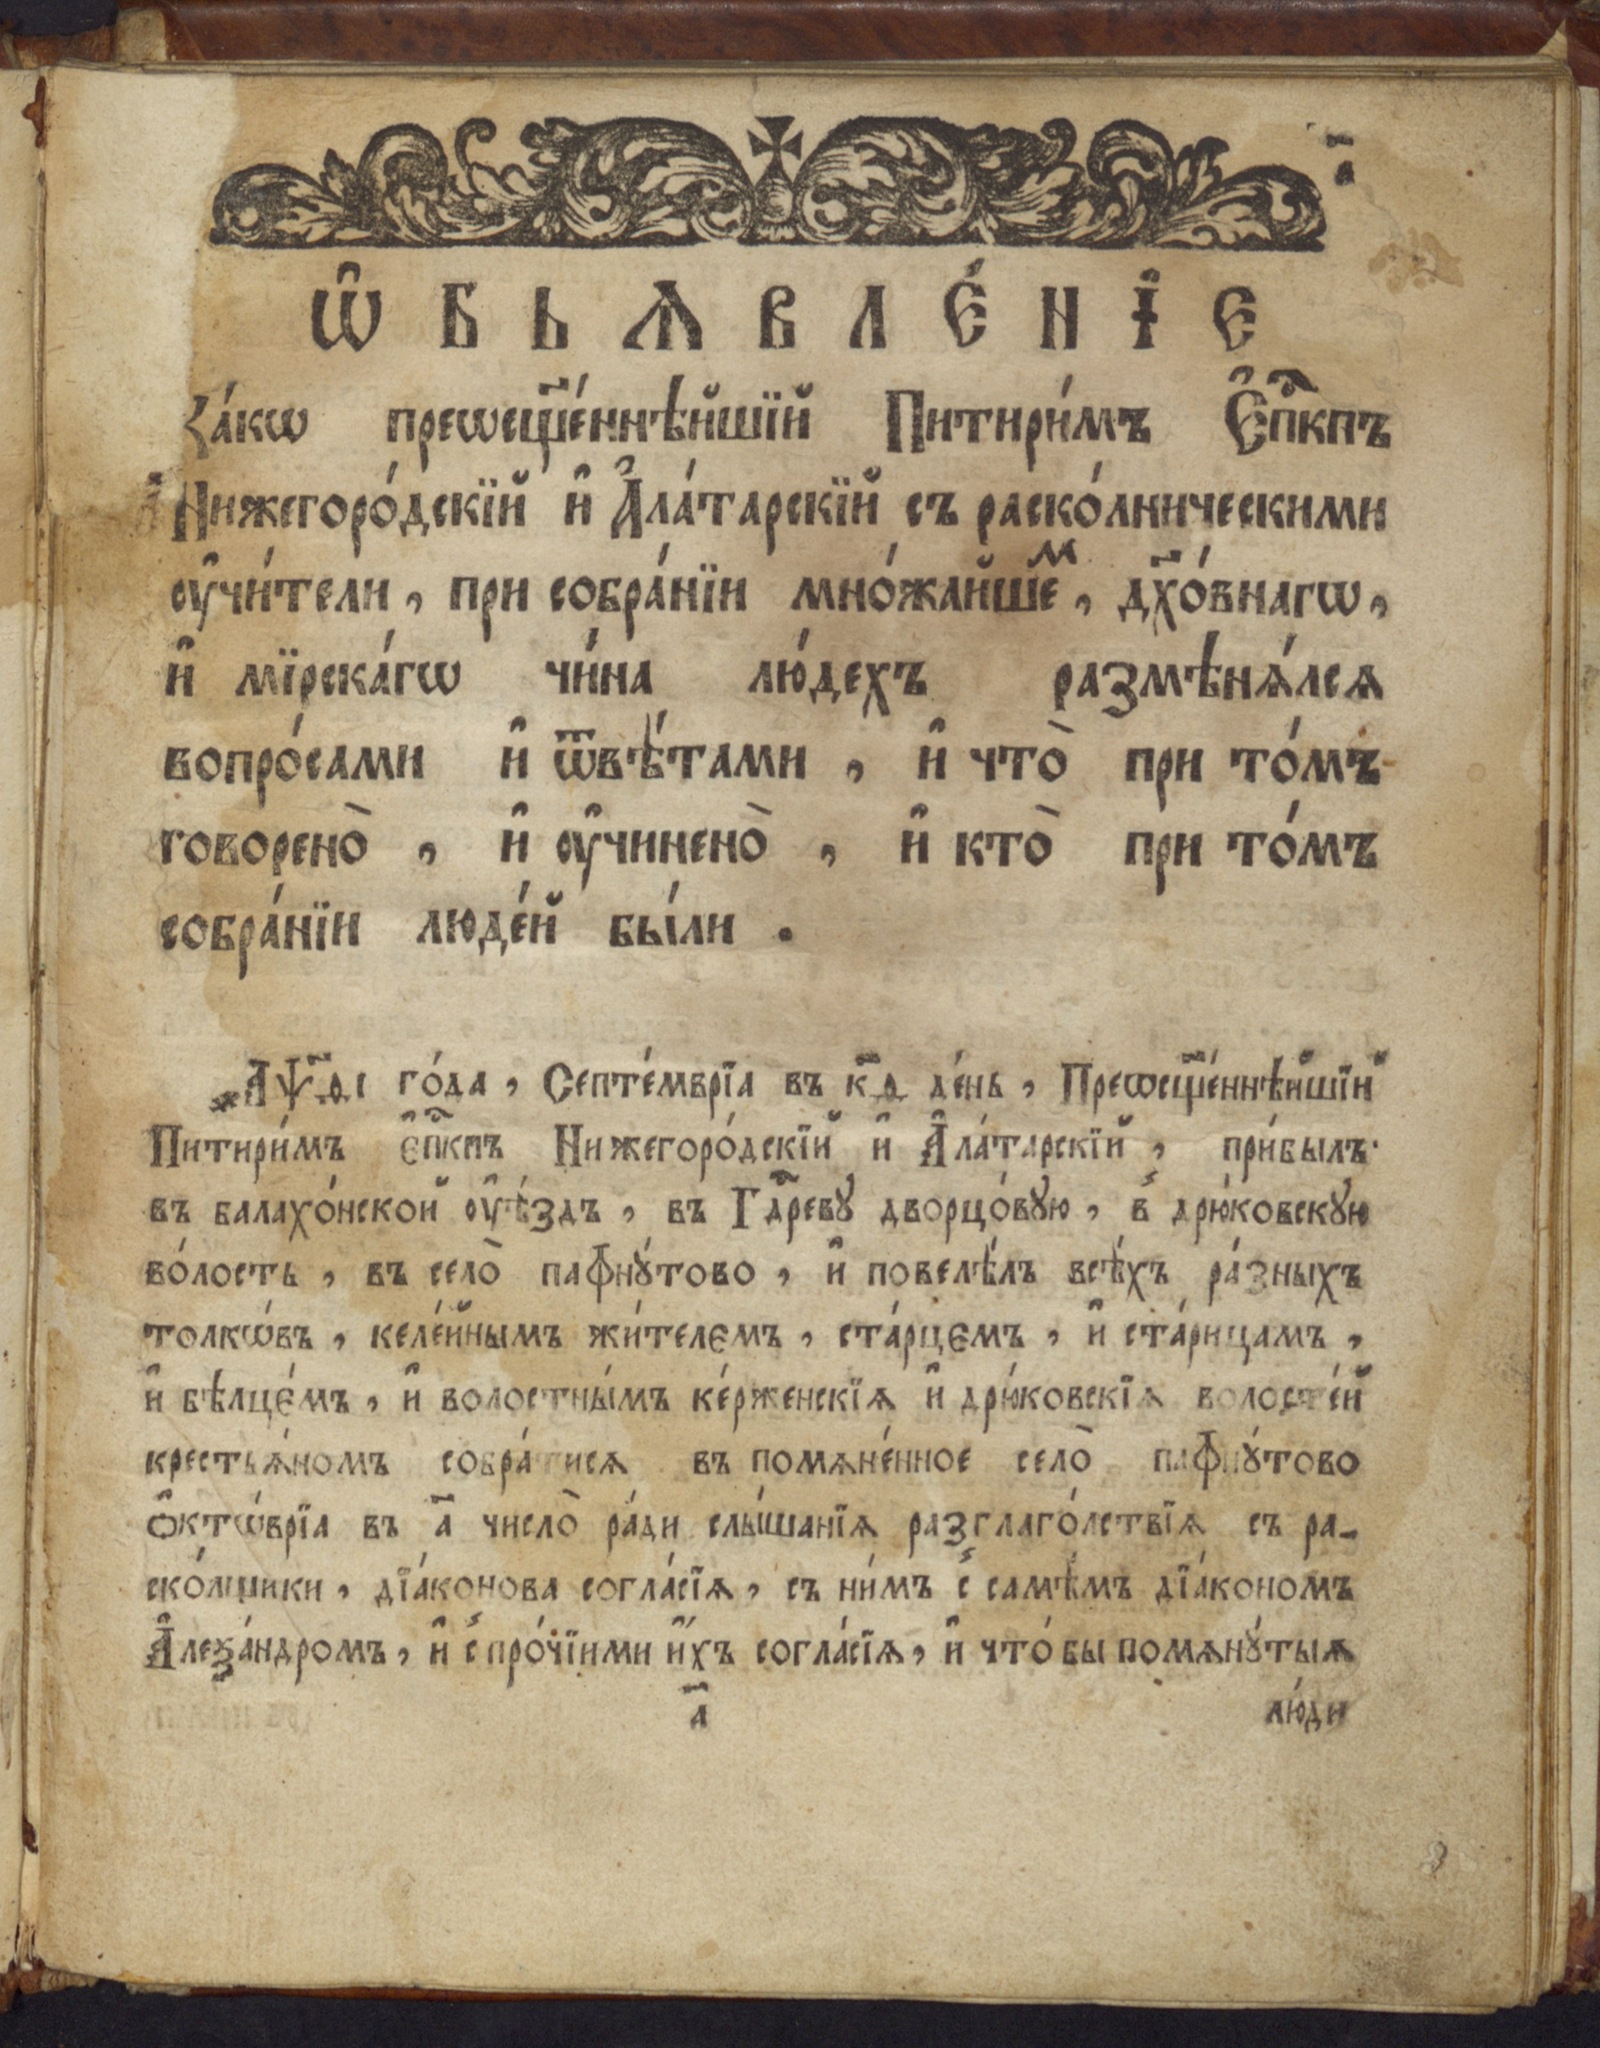 а҃
Ѡ҆бьѧвле́нїе
Ꙗ҆́кѡ преѡсщ҃е́ннѣйшїй Питири́мъ Е҆пⷭ҇кпъ
Нижегоро́дскїй и҆ А҆ла́тарскїй съ раско́лническими
ѹ҆чи́тели, при собра́нїи мно́жайшеⷨ, дх҃о́внагѡ,
и҆ мїрска́гѡ чи́на лю́дехъ размѣнѧ́лсѧ
вопро́сами и҆ ѿвѣ́тами, и҆ что̀ при то́мъ
говорено̀, и҆ ѹ҆чинено̀, и҆ кто̀ при то́мъ
собра́нїи люде́й бы́ли.
҂АѰ҃ѳі го́да, Септе́мврїа въ к҃ѳ де́нь, Преѡсщ҃е́ннѣйшїй
Питири́мъ є҆пⷭ҇кпъ Нижегоро́дскїй и҆ А҆ла́тарскїй, при́былъ
въ балахо́нской ѹ҆ѣ́здъ, въ Гдⷭ҇реву дворцо́вую, в̾ дрю́ковскую
во́лость, въ село̀ пафну́тово, и҆ повелѣ́лъ всѣ́хъ ра́зныхъ
толкѡ́въ, келе́йнымъ жи́телємъ, ста́рцємъ, и҆ ста́рицамъ,
и҆ бѣлце́мъ, и҆ волостны́мъ ке́рженскїѧ и҆ дрю́ковскїѧ волосте́й
крестьѧ́номъ собра́тисѧ въ помѧне́нное село̀ пафну́тово
Ѻ҆ктѡ́врїа въ а҃ число̀ ра́ди слы́шанїѧ разглаго́лствїѧ съ ра-
ско́лщики, дїа́конова согла́сїѧ, съ ни́мъ с̾ самѣ́мъ дїа́кономъ
А҆леѯа́ндромъ, и҆ с̾ про́чїими и҆́хъ согла́сїѧ, и҆ что́бы помѧну́тыѧ
а҃ лю́ди